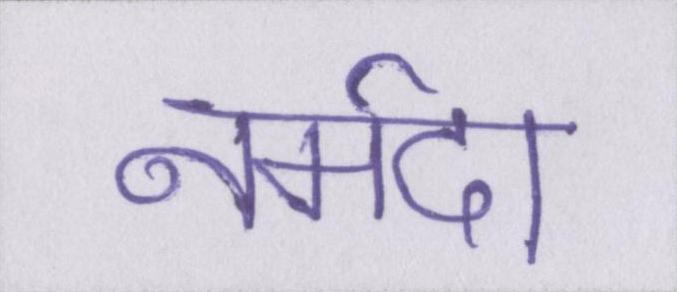 नर्मदा